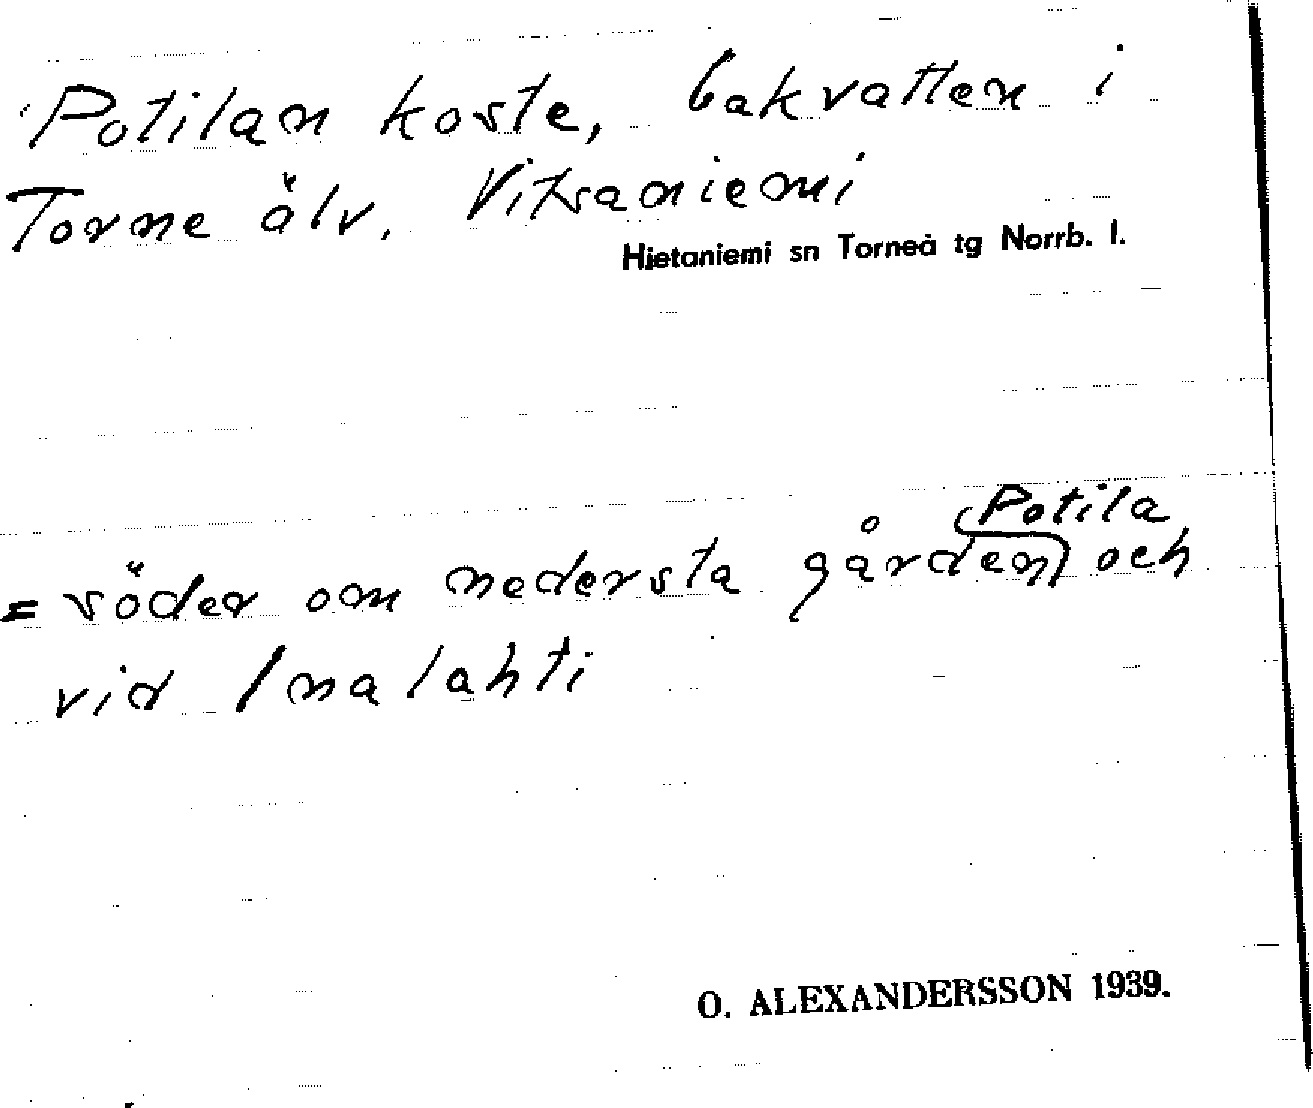 Potilan koste, bakvatten i
Torne älv. Vitsaniemi
Hietaniemi sn Torneå tg Norrb. l.
= söder om nedersta gården (Potila) och
vid Inalahti
O. ALEXANDERSSON 1939.